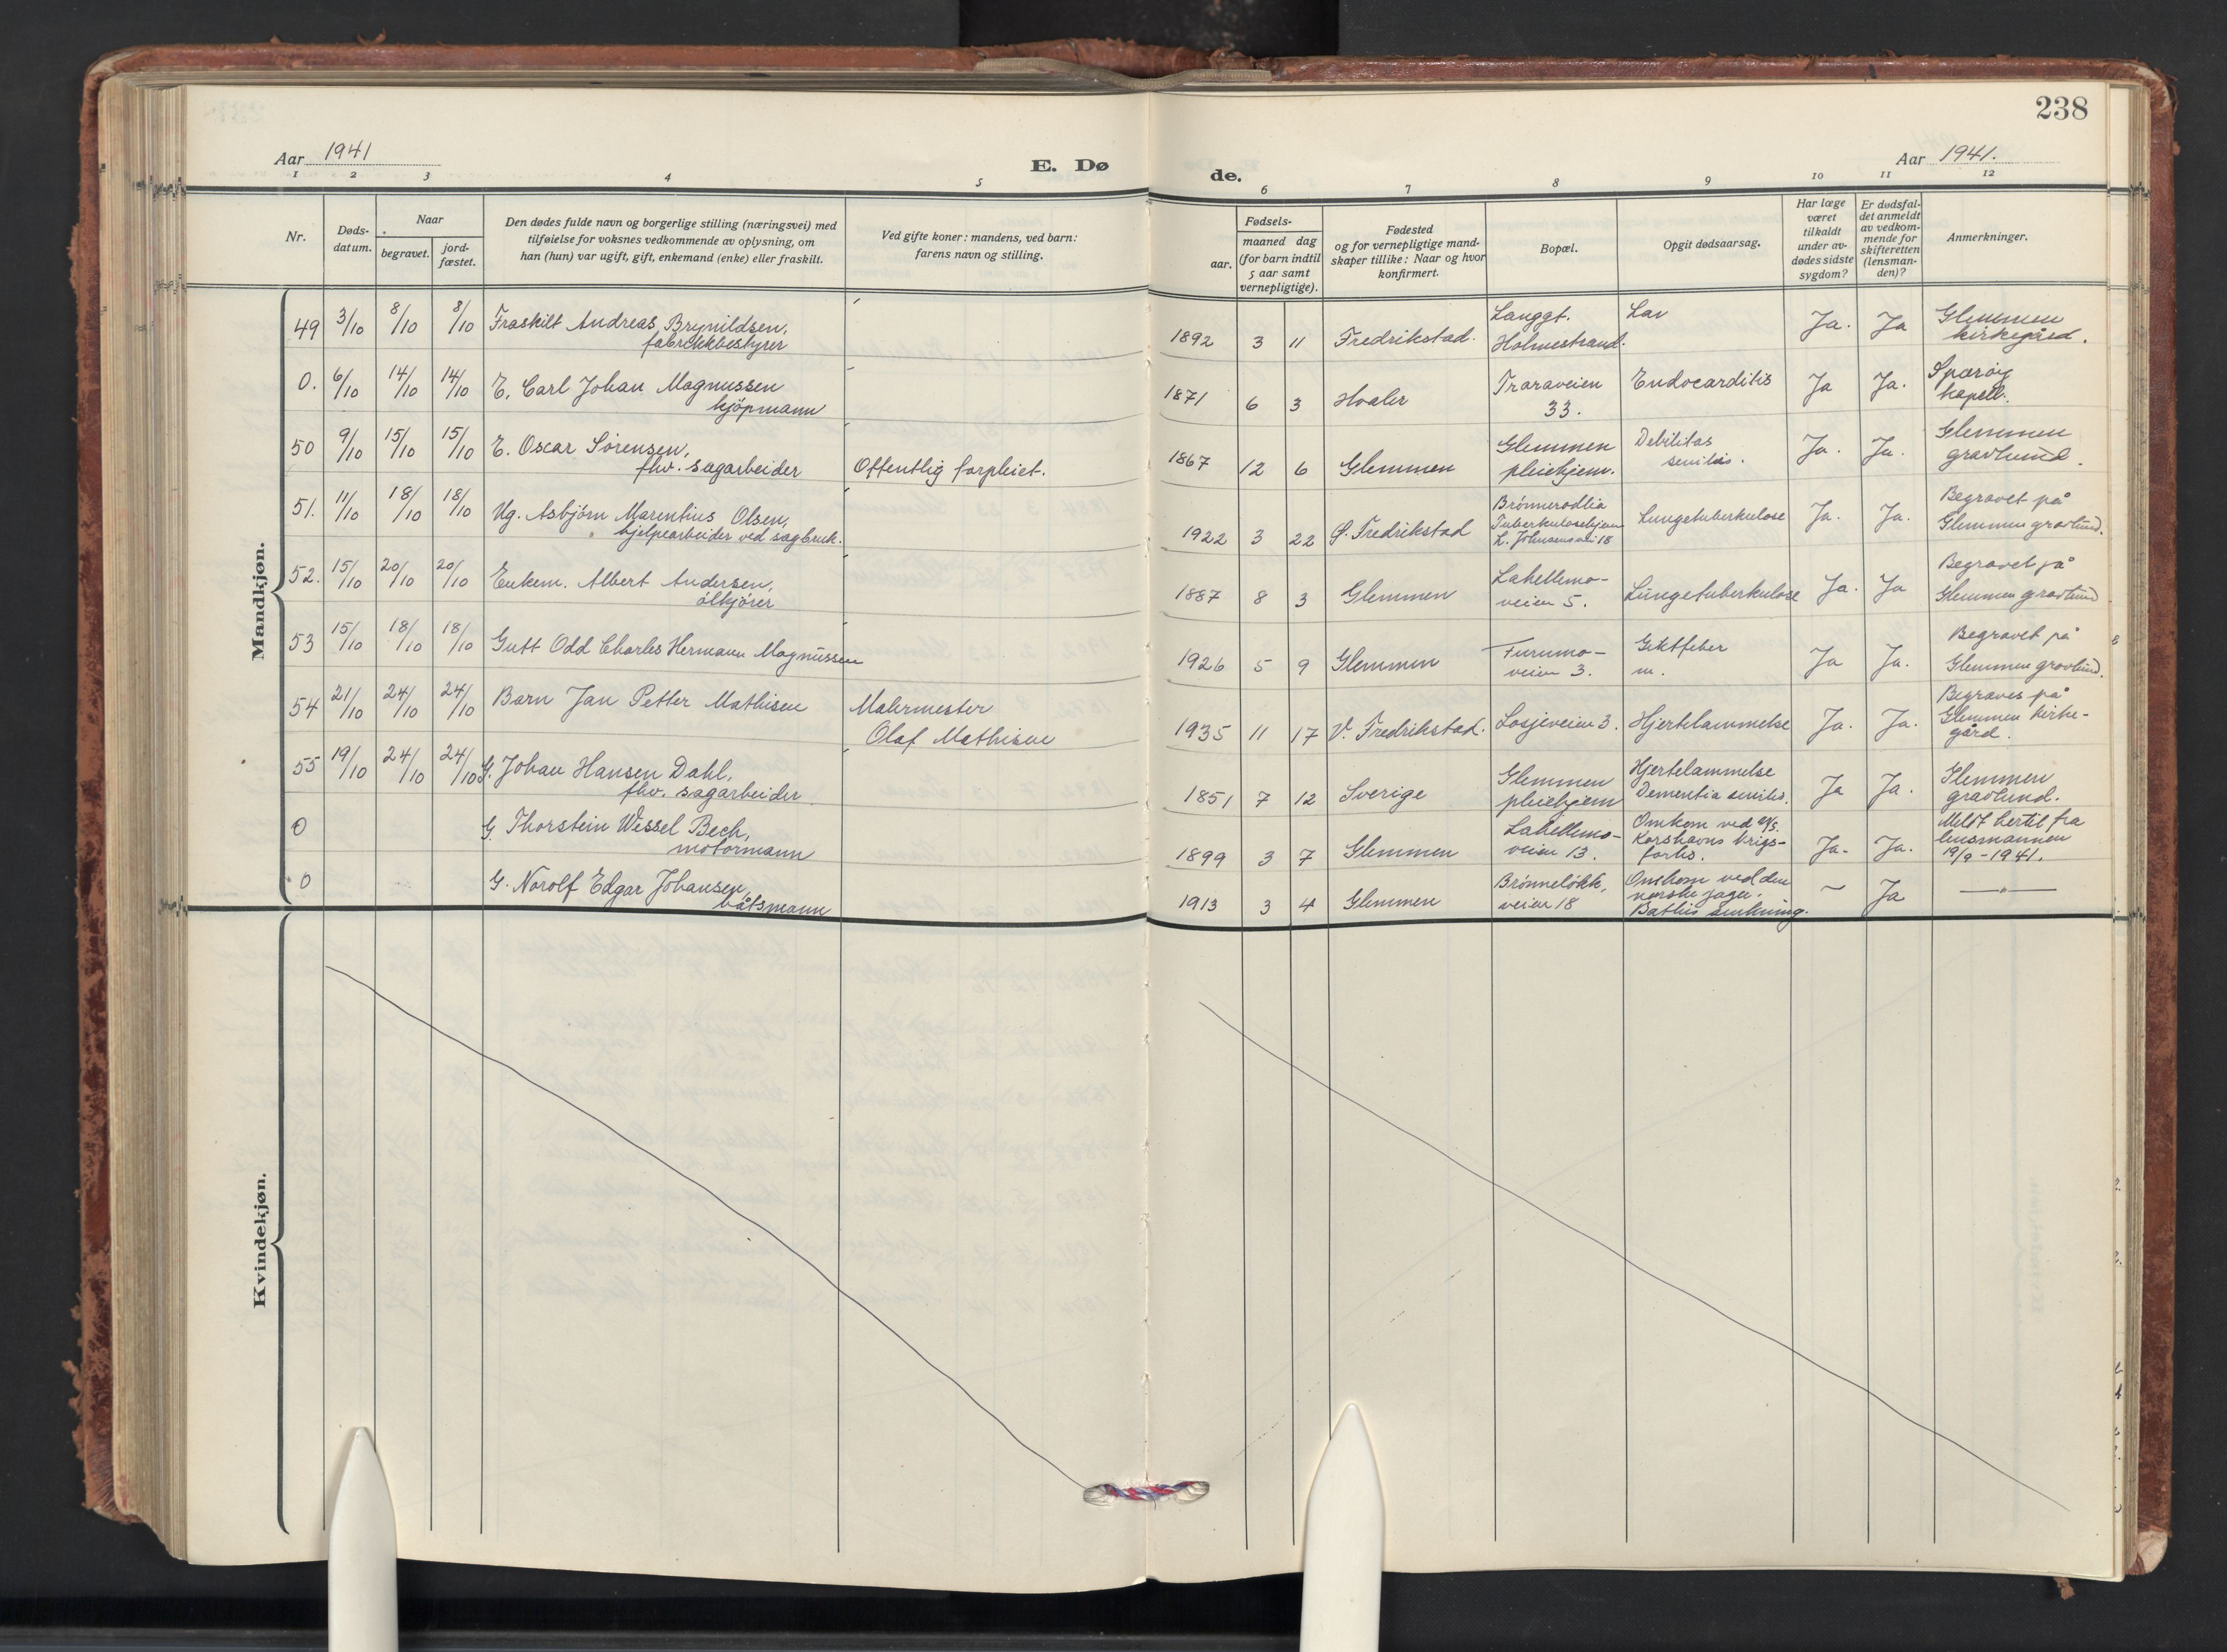 238
Aar 1941
E. Dø
de.
Aar 1941.
1 2 3 4 5 6 7 8 9 10 11 12
Nr.
Døds-
datum.
Naar
begravet.
jord-
fæstet.
Den dødes fulde navn og borgerlige stilling (næringsvei) med
tilføielse for voksnes vedkommende av oplysning, om
han (hun) var ugift, gift, enkemand (enke) eller fraskilt.
Ved gifte koner: mandens, ved barn:
farens navn og stilling.
Fødsels-
aar.
maaned dag
(for barn indtil
5 aar samt
vernepligtige).
Fødested
og for vernepligtige mand-
skaper tillike: Naar og hvor
konfirmert.
Bopæl.
Opgit dødsaarsag.
Har læge
været
tilkaldt
under av-
dødes sidste
sygdom?
Er dødsfal-
det anmeldt
av vedkom-
mende for
skifteretten
(lensman-
den)?
Anmerkninger.
Mandkjøn.
49 3/10 8/10 8/10 Fraskilt Andreas Brynildsen,
fabrikkbestyrer
1892 3 11 Fredrikstad.
Langgt.
Holmestrand.
Ja. Ja
Glemmen
kirkegård.
0. 6/10 14/10 14/10 E. Carl Johan Magnussen
kjöpmann
1871 6 3 Hvaler
Traraveien
33.
Endocarditis
Ja Ja.
Spærøy
kapell.
50 9/10 15/10 15/10 E. Oscar Sörensen,
fhv. sagarbeider
Offentlig forpleiet.
1867 12 6 Glemmen
Glemmen
pleiehjem.
Debilitas
senilis.
Ja. Ja.
Glemmen
gravlund.
51. 11/10 18/10 18/10 Ug. Asbjörn Marentius Olsen,
hjelpearbeider ved sagbruk.
1922 3 22 Ø. Fredrikstad
Brönnerödlia
Tuberkulosehjem
Lungetuberkulose
Ja. Ja.
Begravet på
Glemmen gravlund.
52. 15/10 20/10 20/10 Enkem. Albert Andersen,
ölkjörer
1887 8 3 Glemmen
Lahellemo-
veien 5.
Lungetuberkulose
Ja. Ja
Begravet på
Glemmen gravlund
53 15/10 18/10 18/10 Gutt Odd Charles Hermann Magnussen
1926 5 9 Glemmen
Furumo-
veien 3.
Giktfeber
m.
Ja Ja.
Begravet på
Glemmen gravlund.
54 21/10 24/10 24/10 Barn Jan Petter Mathisen
Malermester
Olaf Mathisen
1935 11 17 V. Fredrikstad.
Losjeveien 3.
Hjertelammelse
Ja. Ja.
Begraves på
Glemmen kirke-
gård.
55 19/10 24/10 24/10 G. Johan Hansen Dahl,
fhv. sagarbeider
1851 7 12 Sverige
Glemmen
pleiehjem
Hjertelammelse
Dementia senilis.
Ja Ja.
Glemmen
gravlund.
0 G. Thorstein Wessel Bech,
motormann
1899 3 7 Glemmen
Lahellemo-
veien 13.
Omkom ved M/S.
Korshavns krigs-
forlis.
Ja. Ja.
Meldt hertil fra
lensmannen
19/9-1941.
0 G. Norolf Edgar Johansen,
båtsmann
1913 3 4 Glemmen
Brönnelökk.
veien 18
Omkom ved den
norske jager.
Baths senkning.
~ Ja —"—
Kvindekjøn.